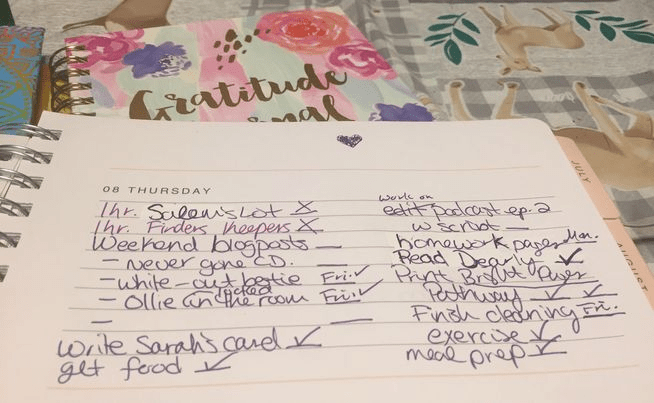 Gratitude
nal
JULY
AUGUST
08 THURSDAY
1hr. Salem's Lot X
1hr. Finders Keepers X
Weekend blogposts —
- never gone CD. —
- white-out bestie Fri. ✓
- Ollie in the room Fri. ✓
- —
write Sarah's card ✓
get food ✓
work on
edit podcast ep. 2
w script —
homework pages Mon.
Read Dearly ✓
Print Bright
Pathway ✓ ✓
Finish cleaning Fri.
exercise ✓
meal prep ✓